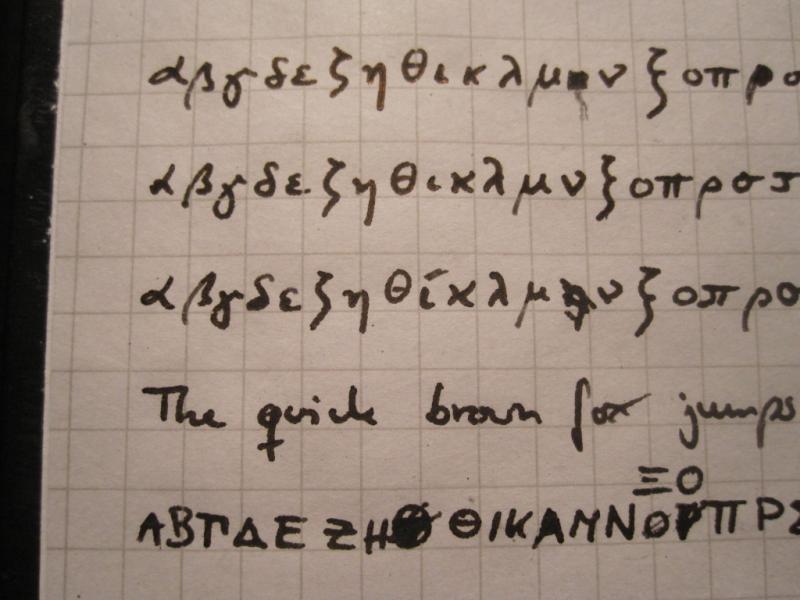 αβγδεζηθικλμνξοπρσ
αβγδεζηθικλμνξοπρστ
αβγδεζηθίκλμνξοπρσ
The quick brown fox jumps
ΞΟ
ΑΒΓΔΕΖΗΘΙΚΛΜΝΠΡΣ